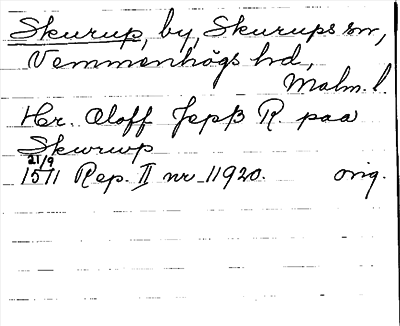 Skurup, by, Skurups sn,
Vemmenhögs hd,
Malm. l.
Hr. Oloff Jepß R. paa
Skwrwp
21/9
1511 Rep. II nr 11920. orig.